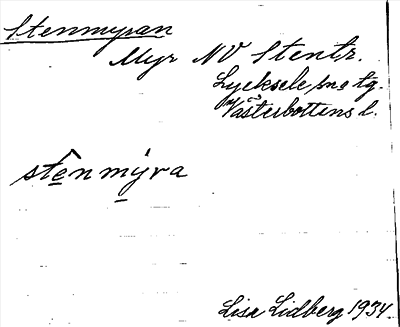 Stenmyran
Myr NV Stentr.
Lycksele sns tg.
Västerbottens l.
stênmýra
Lisa Lidberg 1934.